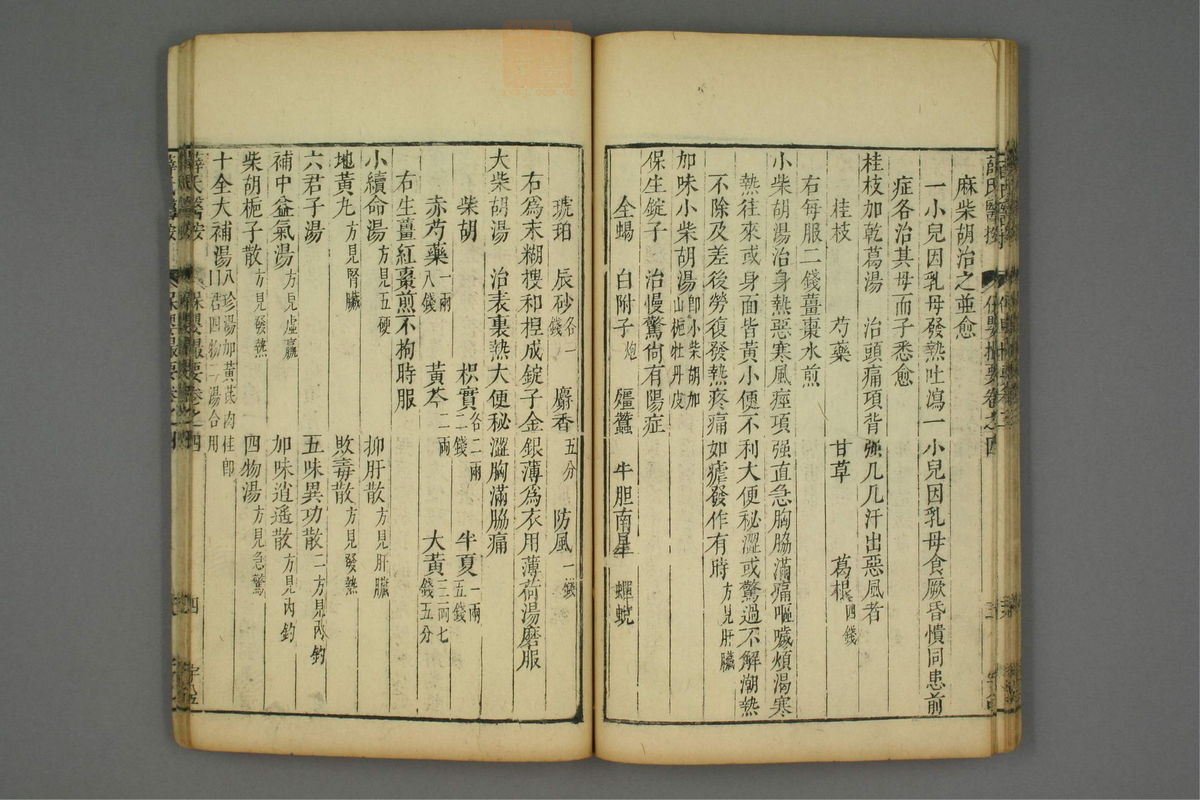 麻柴胡治之並愈
一小兒因乳母發熱吐瀉一小兒因乳母食厥昏憒同患前
症各治其母而子悉愈
桂枝加乾葛湯　治頭痛項背強几几汗出惡風者
桂枝　芍藥　甘草　葛根四錢
右每服二錢薑棗水煎
小柴胡湯治身熱惡寒風痙項強直急胸脇滿痛嘔噦煩渴寒
熱往來或身面皆黃小便不利大便秘澀或驚過不解潮熱
不除及差後勞復發熱疼痛如瘧發作有時方見肝臟
加味小柴胡湯即小柴胡加山梔牡丹皮
保生錠子　治慢驚尚有陽症
全蝎　白附子炮　殭蠶　牛胆南星　蟬蛻
琥珀　辰砂各一錢　麝香五分　防風一錢
右為末糊搜和桯成錠子金銀薄為衣用薄荷湯磨服
大柴胡湯　治表裏熱大便秘澀胸滿脇痛
柴胡　枳實各二兩二錢　半夏一兩五錢
赤芍藥一兩八錢　黃芩二兩　大黃二兩七錢五分
右生薑紅棗煎不拘時服
小續命湯方見五硬　抑肝散方見肝臟
地黃丸方見腎臟　敗毒散方見發熱
六君子湯　五味異功散二方見內釣
補中益氣湯方見虛羸　加味逍遙散方見內釣
柴胡梔子散方見發熱　四物湯方見急驚
十全大補湯八珍湯加黃芪肉桂即四君四物二湯合用
薛氏醫按　保嬰撮要卷之四